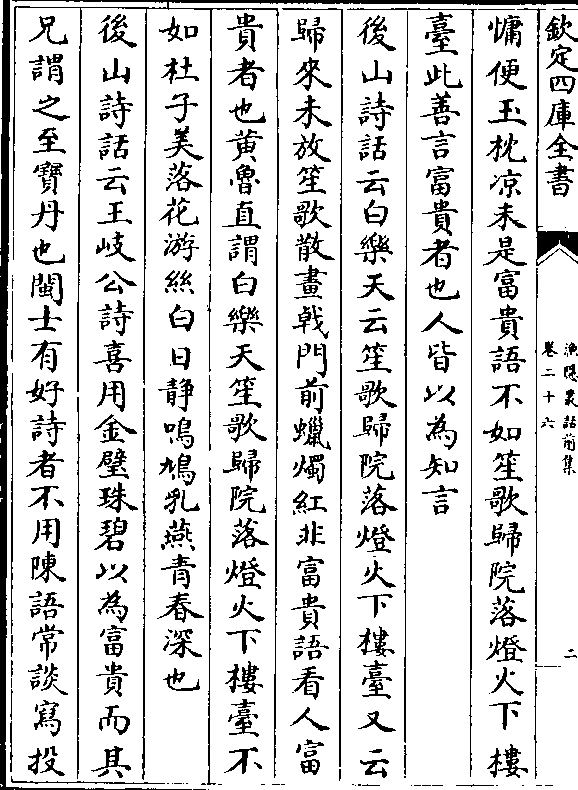 欽定四庫全書
漁隱叢話前集
卷二十六
二
慵便玉枕凉未是富貴語不如笙歌歸院落燈火下樓
臺此善言富貴者也人皆以為知言
後山詩話云白樂天云笙歌歸院落燈火下樓臺又云
歸來未放笙歌散畫戟門前蠟燭紅非富貴語看人富
貴者也黄魯直謂白樂天笙歌歸院落燈火下樓臺不
如杜子美落花游絲白日静鳴鳩乳燕青春深也
後山詩話云王岐公詩喜用金璧珠碧以為富貴而其
兄謂之至寶丹也閩士有好詩者不用陳語常談寫投